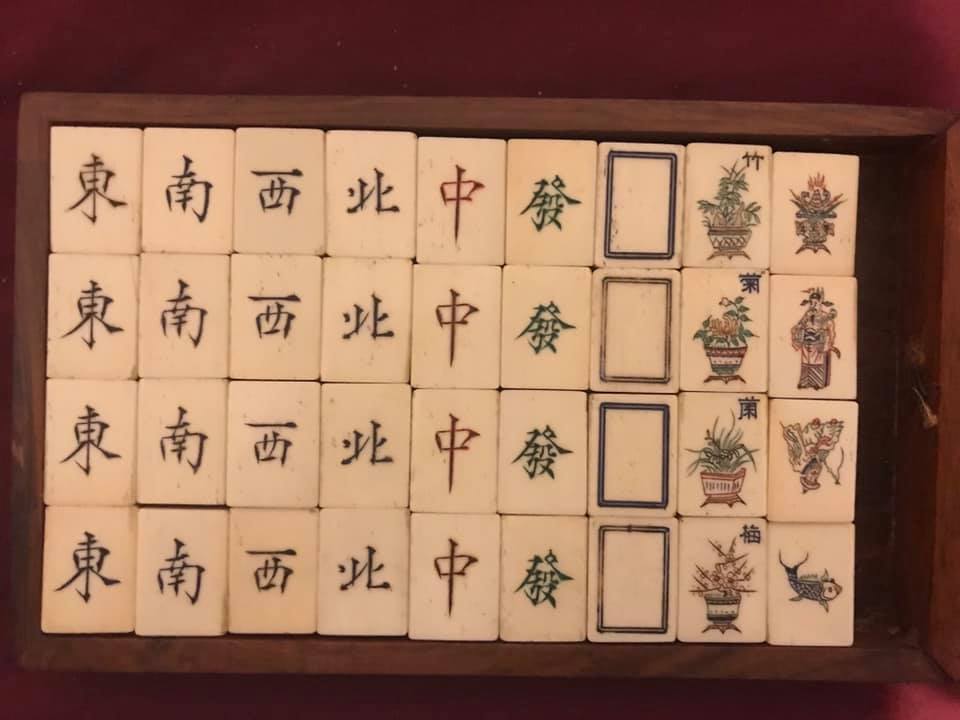 東 南 西 北 中 發 竹
東 南 西 北 中 發 菊
東 南 西 北 中 發 蘭
東 南 西 北 中 發 梅